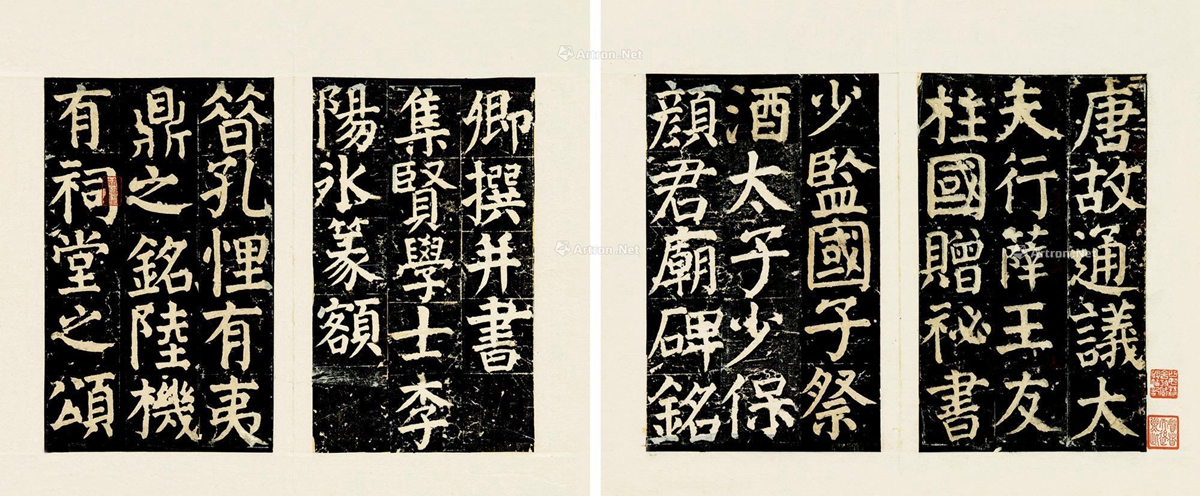 唐故通議大
夫行薛王友
柱國贈祕書
少監國子祭
酒太子少保
顔君廟碑銘
卿撰并書
集賢學士李
陽冰篆額
昝孔悝有夷
鼎之銘陸機
有祠堂之頌
Artron.Net
Artron.Net
Artron.Net
Artron.Net